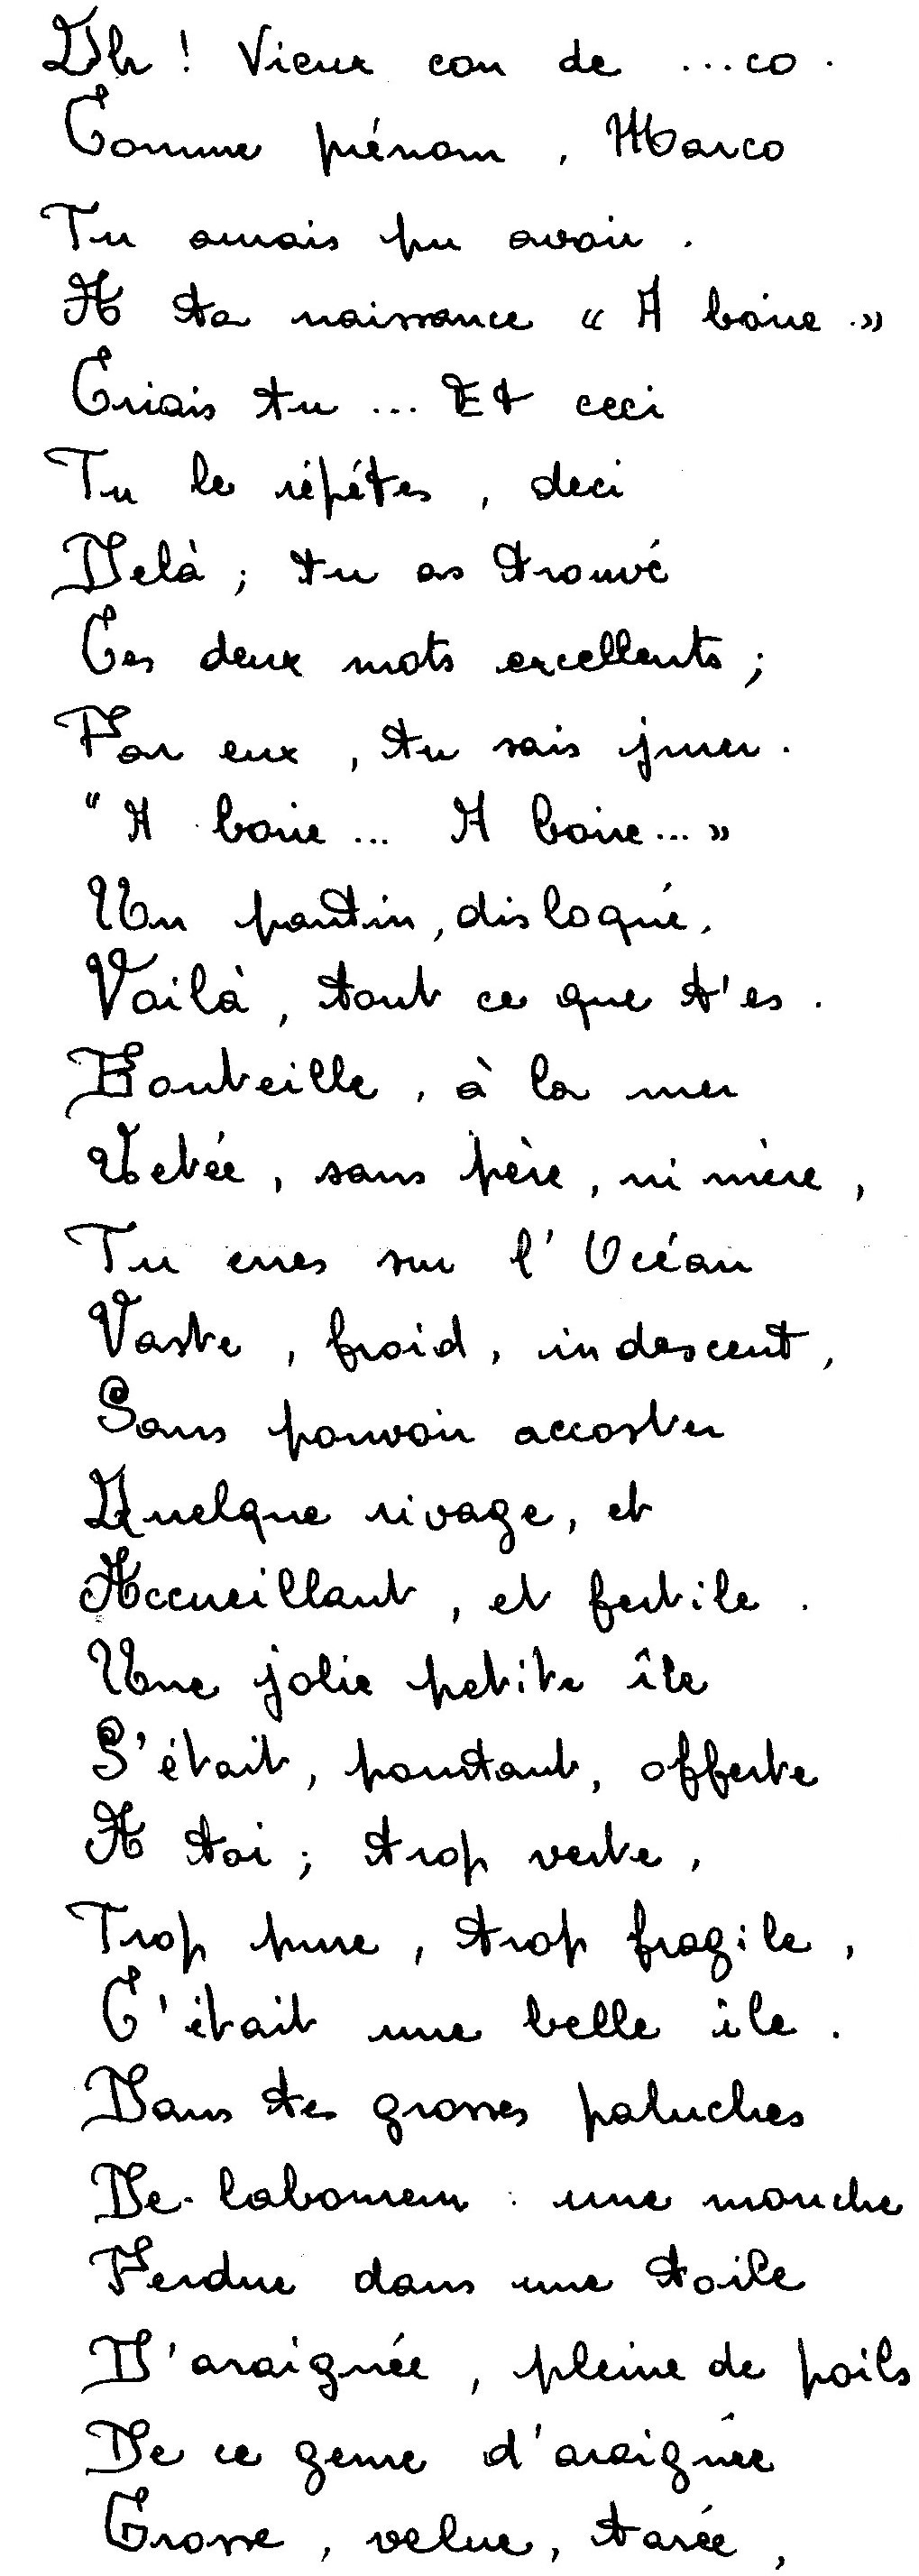 Oh ! Vieux con de ...co .
Comme prénom , Marco
Tu aurais pu avoir .
A ta naissance « A boire .»
Criais tu ... Et ceci
Tu le répétes , deci
Delà ; tu as trouvé
Ces deux mots excellents ;
Par eux , tu sais jurer .
"A boire ... A boire ... »
Un pantin , disloqué ,
Voilà , tout ce que t'es .
Bouteille , à la mer
Jetée , sans père , ni mère ,
Tu erres sur l' Océan
Vaste , froid , indescent ,
Sans pouvoir accoster
Quelque rivage , et
Accueillant , et fertile .
Une jolie petite île
S'était , pourtant , offerte
A toi ; trop verte ,
Trop pure , trop fragile ,
C'était une belle île .
Dans tes grosses paluches
De laboureur : une mouche
Perdue dans une toile
D'araignée , pleine de poils
De ce genre d'araignée
Grosse , velue , tarée ,